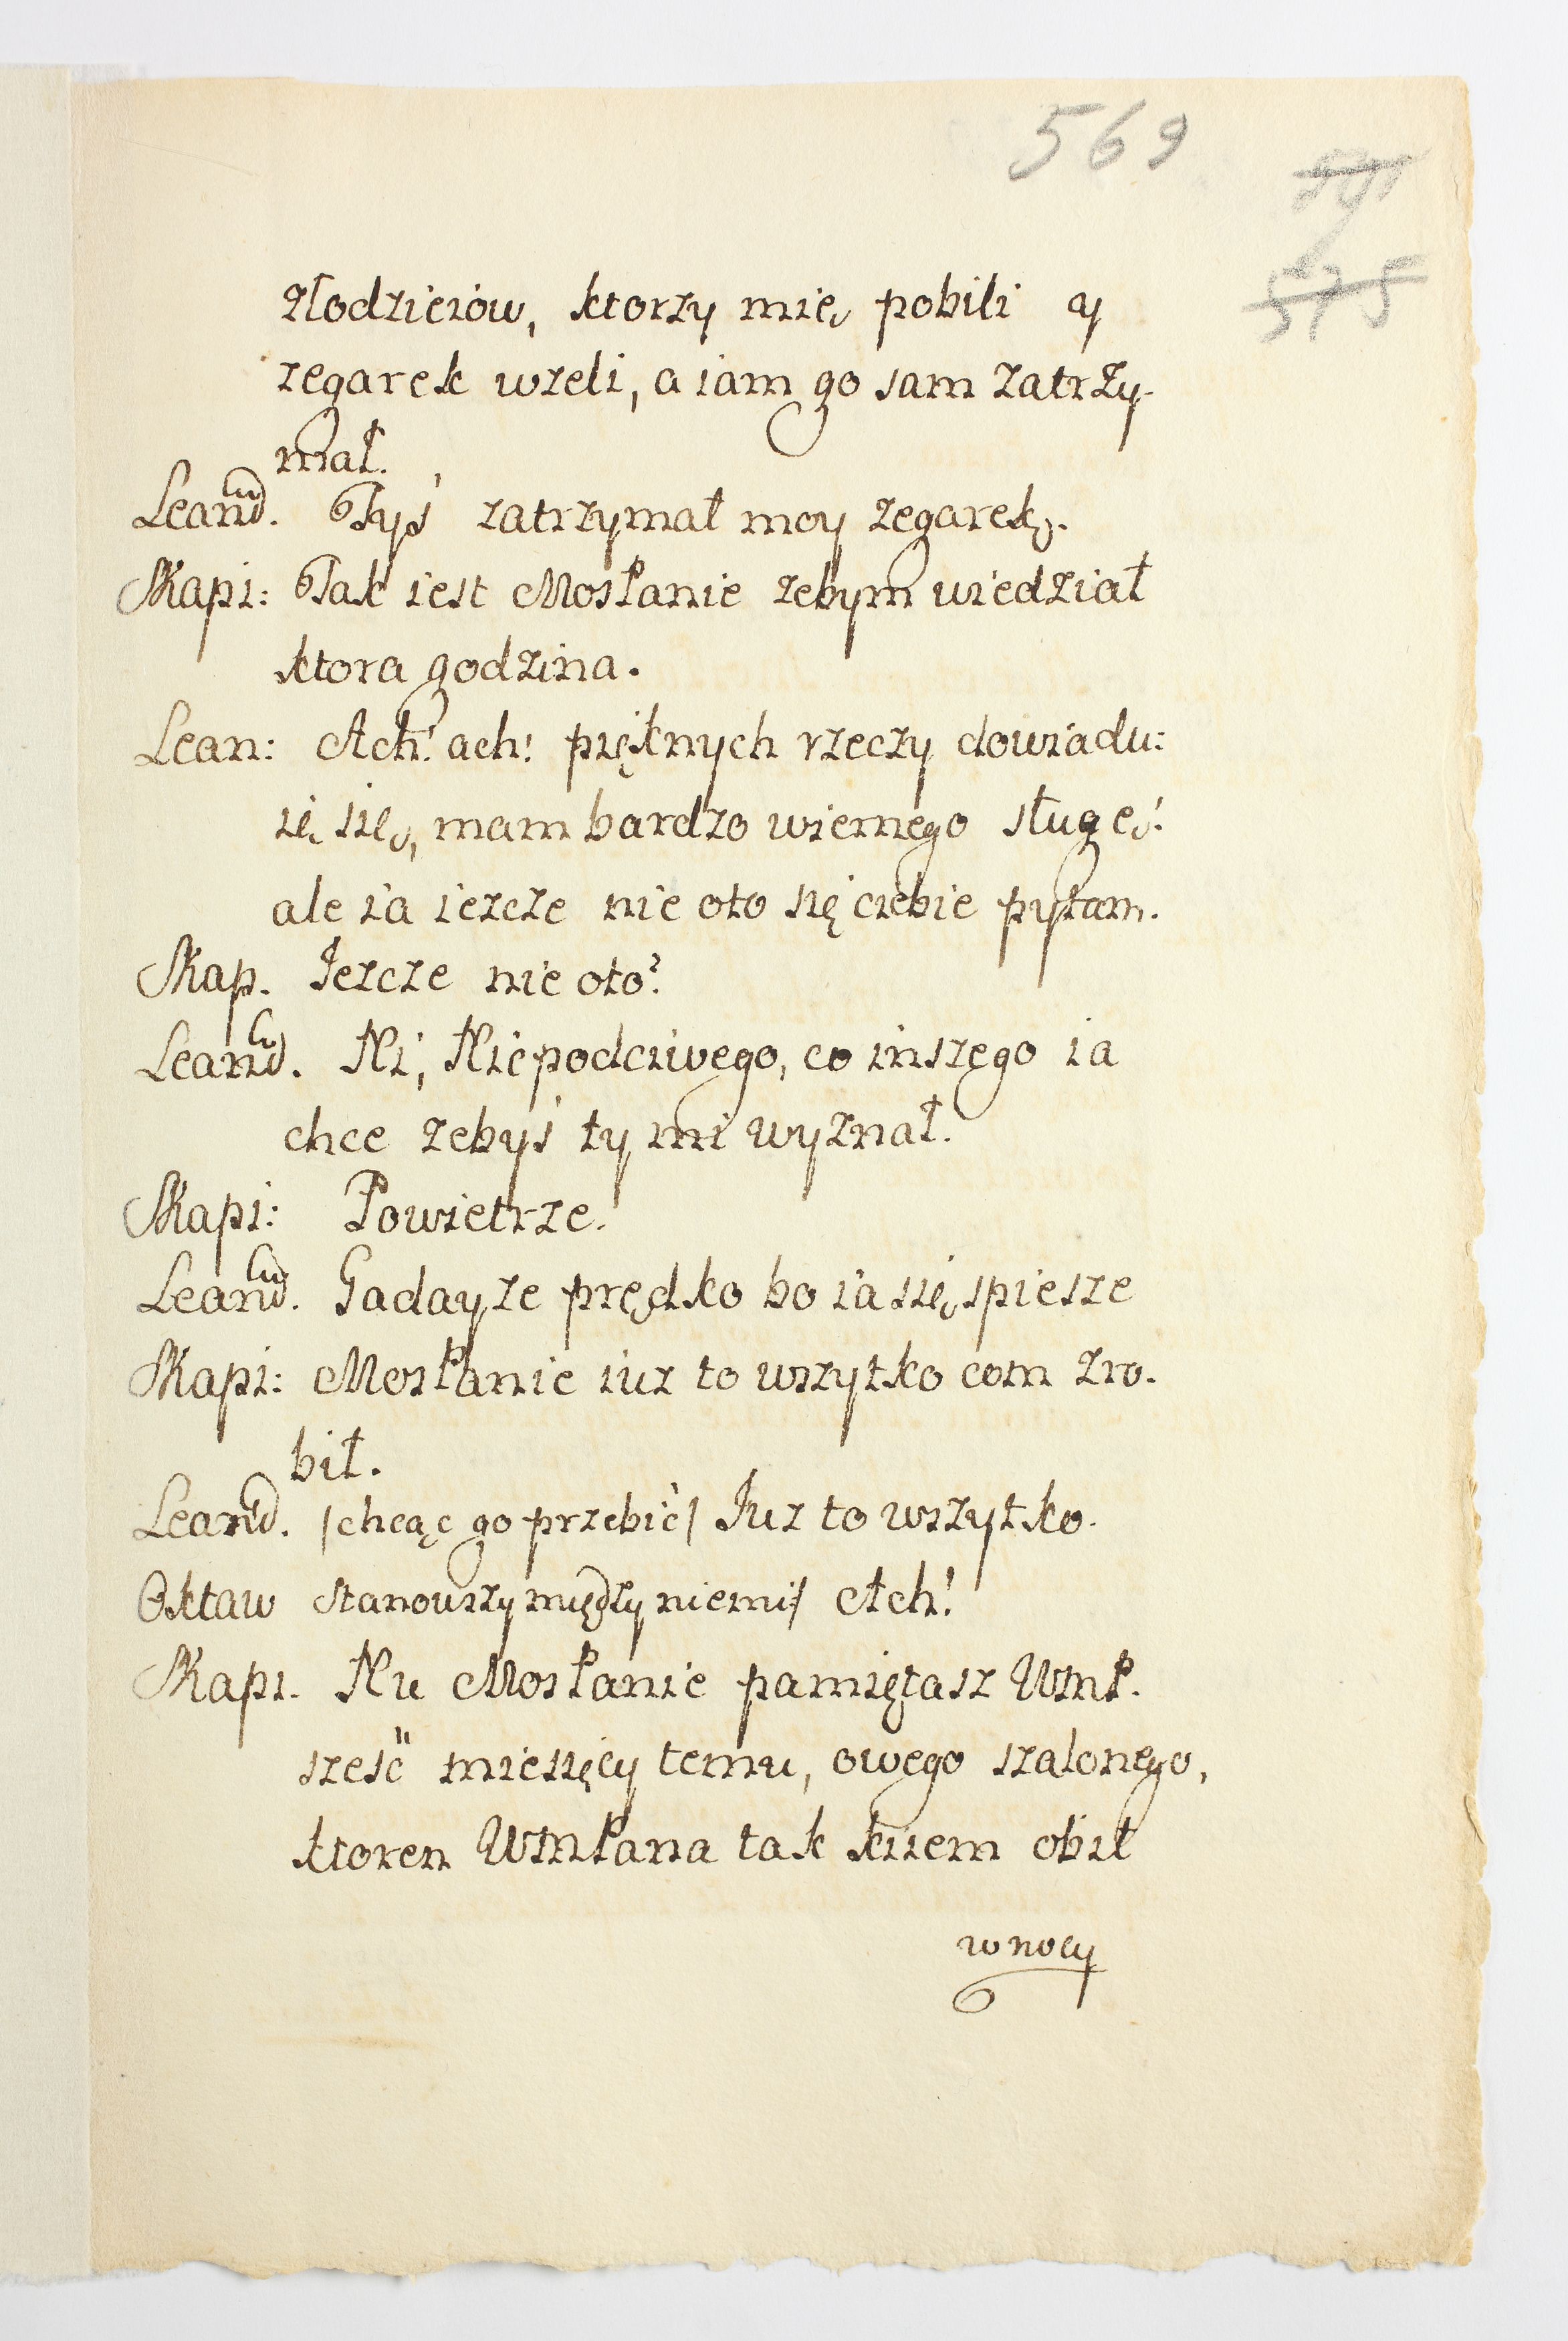 569
575
złodzieiow, ktorzy mię pobili y
zegarek wzeli, a iam go sam zatrzy-
mał.
Leand. Tyś zatrzymał moy zegarek.
Skapi: Tak iest MosPanie zebym wiedział
ktora godzina.
Lean: Ach! ach! pięknych rzeczy dowiadu:
ię się, mam bardzo wiernego sługę!
ale ia iezcze nie oto się ciebie pytam.
Skap. Jezcze nie oto?
Leand. Ni, Niepodciwego, co inszego ia
chce zebyś ty mi wyznał.
Skapi: Powietrze.
Leand. Gadayze prędko bo ia się spiesze
Skapi: MosPanie iuz to wszytko com zro-
bił.
Leand. /chcąc go przebić/ Juz to wszytko.
Oktaw stanowszy między niemi/ Ach!
Skapi. Nu MosPanie pamiętasz WMP.
sześć miesięcy temu, owego szalonego,
ktoren WMPana tak kiiem obił
w nocy